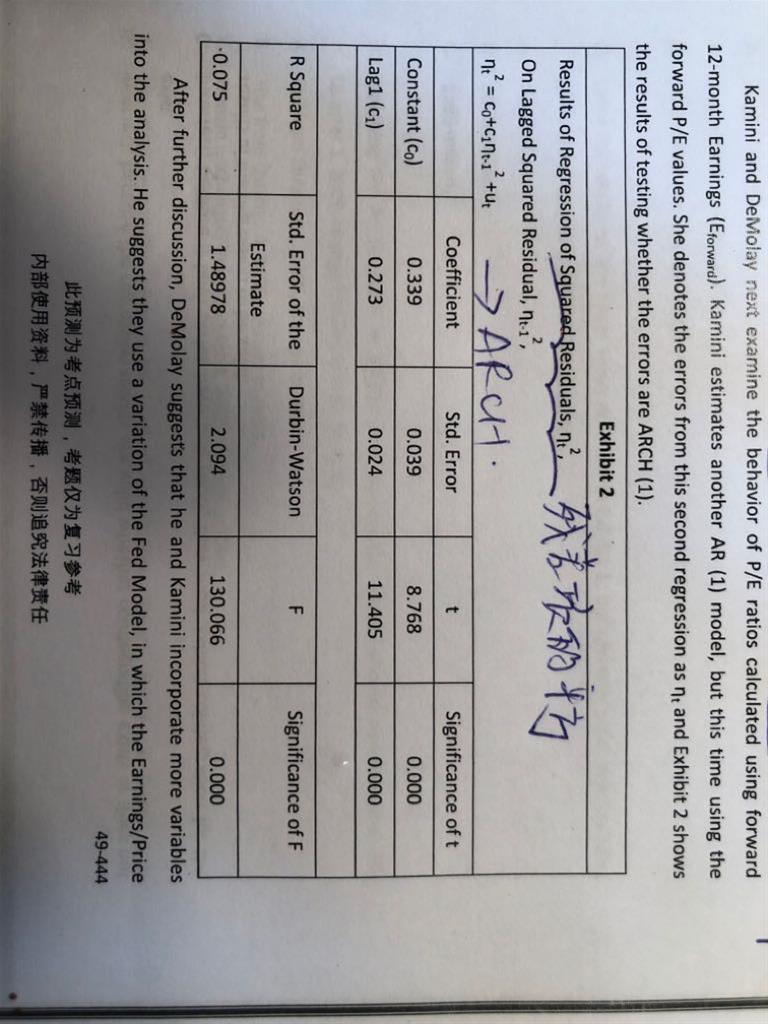 Kamini and DeMolay next examine the behavior of P/E ratios calculated using forward
12-month Earnings (Eforward). Kamini estimates another AR (1) model, but this time using the
forward P/E values. She denotes the errors from this second regression as ηt and Exhibit 2 shows
the results of testing whether the errors are ARCH (1).
Exhibit 2
Results of Regression of Squared Residuals, ηt²,
On Lagged Squared Residual, ηt-1²,
ηt² = c0+c1ηt-1² +ut
→ ARCH.
Coefficient Std. Error t Significance of t
Constant (c0) 0.339 0.039 8.768 0.000
Lag1 (c1) 0.273 0.024 11.405 0.000
R Square Std. Error of the Estimate Durbin-Watson F Significance of F
0.075 1.48978 2.094 130.066 0.000
After further discussion, DeMolay suggests that he and Kamini incorporate more variables
into the analysis. He suggests they use a variation of the Fed Model, in which the Earnings/Price
49-444
此预测为考点预测，考题仅为复习参考
内部使用资料，严禁传播，否则追究法律责任